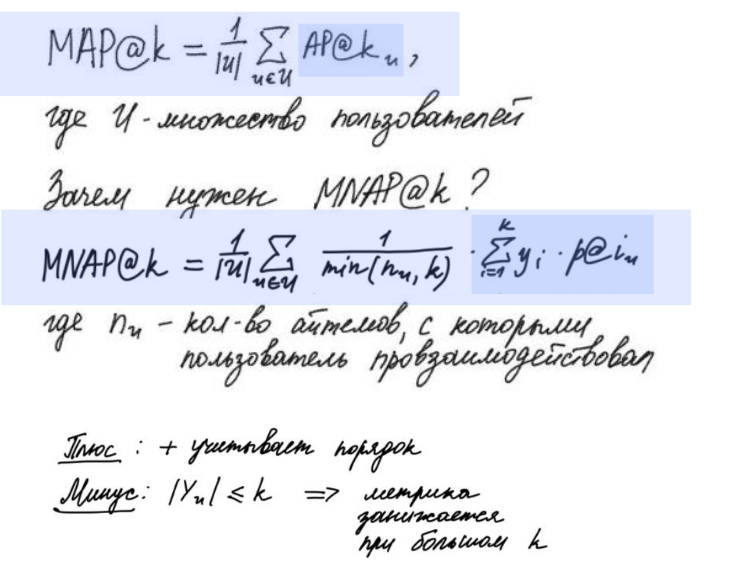 MAP@k = 1/|U| ∑_{u∈U} AP@k_u,
где U - множество пользователей
Зачем нужен MNAP@k?
MNAP@k = 1/|U| ∑_{u∈U} 1/min(n_u, k) · ∑_{i=1}^{k} y_i · p@i_u
где n_u - кол-во айтемов, с которыми
пользователь провзаимодействовал
Плюс: + учитывает порядок
Минус: |Y_u| ≤ k => метрика
занижается
при большом k